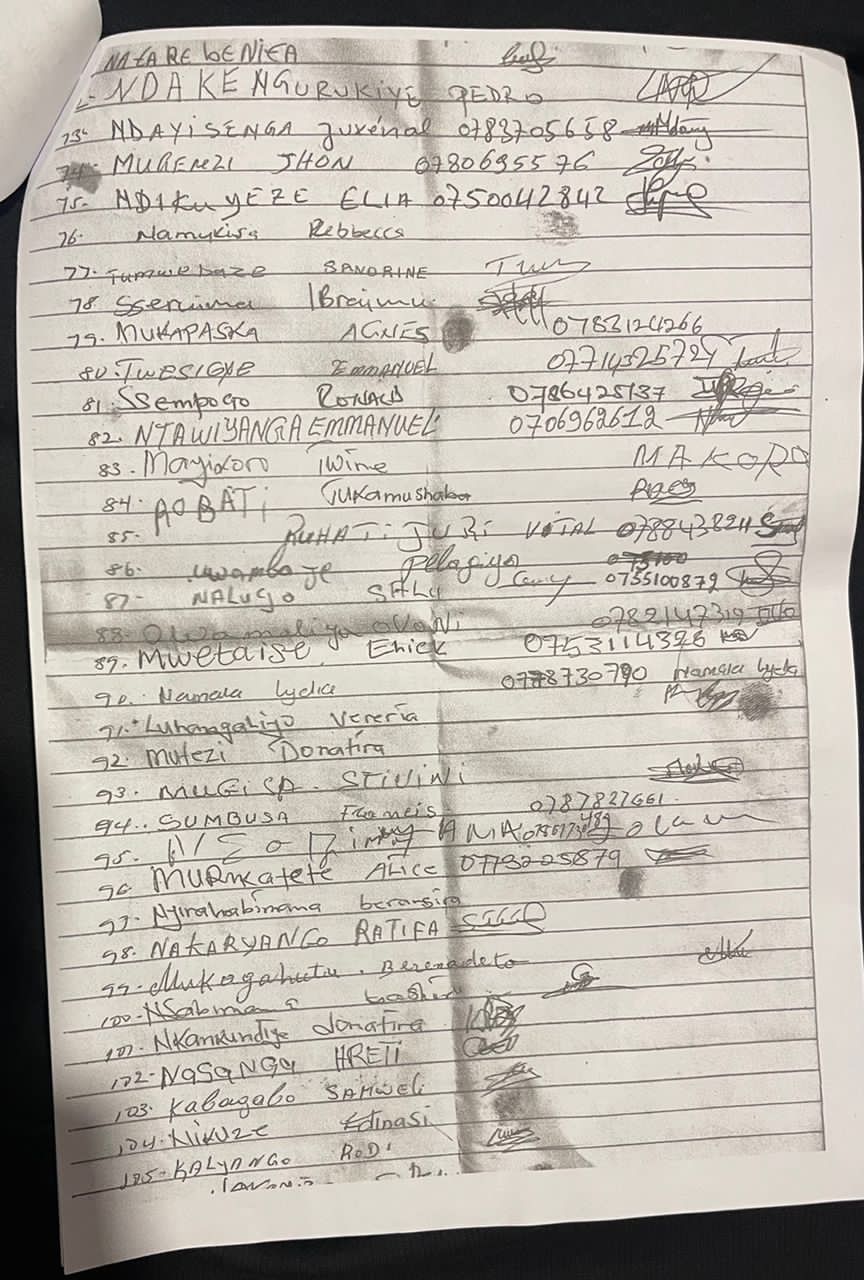 NATARE beNiTA
NDAKENGURUKiYE PEDRO
73. NDAYISENGA Juvénal 0783705658
74. MUGENZI JHON 0780695576
75. NDIKUYEZE ELIA 0750042842
76. Namukisa Rebbecca
77. Tumwebaze SANDRINE
78. Sseruma IBraimu
79. MUKAPASKA AGNES 0783124266
80. TWESIGYE EMMANUEL 0771432572
81. Ssempogo RONALD 0786425137
82. NTAWIYANGA EMMANUEL 0706962612
83. Mayikoro Twine MAKORO
84. ROBATi Tukamushaba
85. RUHATiJURi ViTAL 0788438211
86. uwambaje Pelagiya
87. NALUGO SALU 0755100879
88. 0782147319
89. Mwetaise Erick 0753114326
90. Namala lydia 0778730790 Namala lydia
91. Luhangaliyo Vereria
92. Mutezi Donatira
93. MUGiSA STiViNi
94. SUMBUSA Francis 0787827661
95.
96. MURukatete ALiCE 0773225879
97. Nyirahabimana beransira
98. NAKARYANGO RATIFA
99. Mukagahutu Berenadeta
100. NSabimana
101. Nkankundiye donatira
102. NASANGA HRETI
103. Kabagabo SAMWELi
104. NIKUZE Edinasi
105. KALYANGO RODi